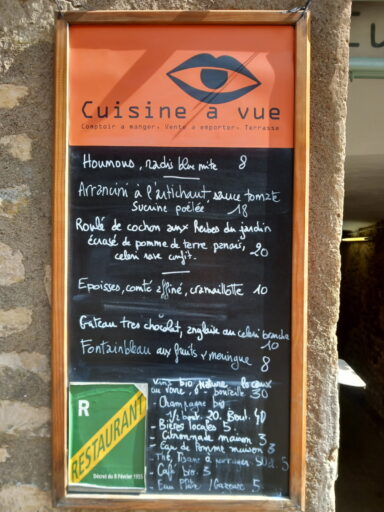 Cuisine a vue
Comptoir a manger, Vente a emporter, Terrasse
Houmous, radis blue mite 8
Arrancini à l'artichaut, sauce tomate
Sucrine poêlée 18
Roulé de cochon aux herbes du jardin
écrasé de pomme de terre panais, 20
celeri rave confit.
Epoisses, comté affiné, cramaillotte 10
Gateau tres chocolat, anglaise au celeri branche
10
Fontainbleau aux fruits & meringue 8
Vins bio nature, locaux
30
- Champagne bio
1/2 bout. 20. Bout. 40
- Bières locales 5
- Citronnade maison 3
- Eau de Pomme maison 3
- Café bio. 3
- Eau Plate / Gazeuse 5
R
RESTAURANT
Décret du 8 Février 1955